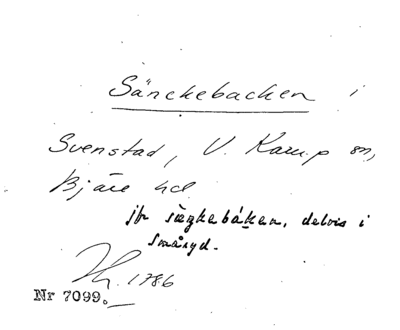 Sänckebacken i
Svenstad, V. Karup sn,
Bjäre hd
jfr sæŋkebáken, delvis i
Småryd.
1786
Nr 7099.